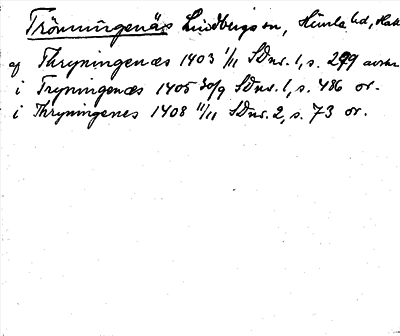 Trönningenäs Lindbergs sn, Himle hd, Hall
af Thryningenæs 1403 1/11 SDns. 1, s. 299 avskr
i Tryningenæs 1405 30/9 SDns. 1, s. 486 or.
i Thryningenes 1408 11/11 SDns. 2, s. 73 or.